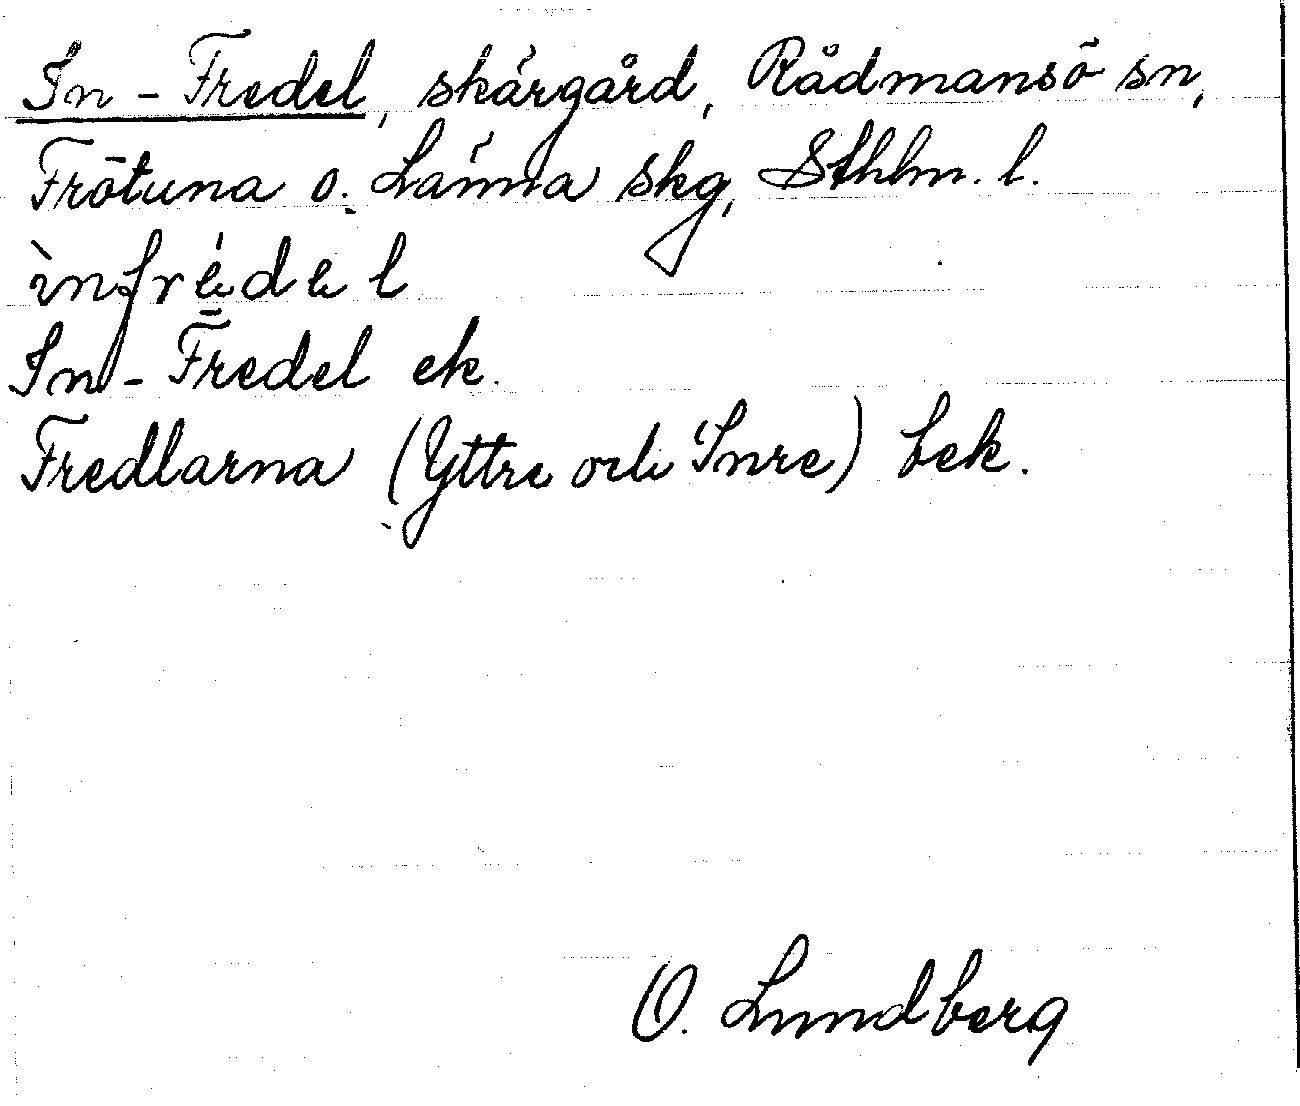 In-Fredel, skärgård, Rådmansö sn,
Frötuna o. Länna skg, Sthlm. l.
ìnfré̱del
In-Fredel ek.
Fredlarna (Yttre och Inre) bek.
O. Lundberg